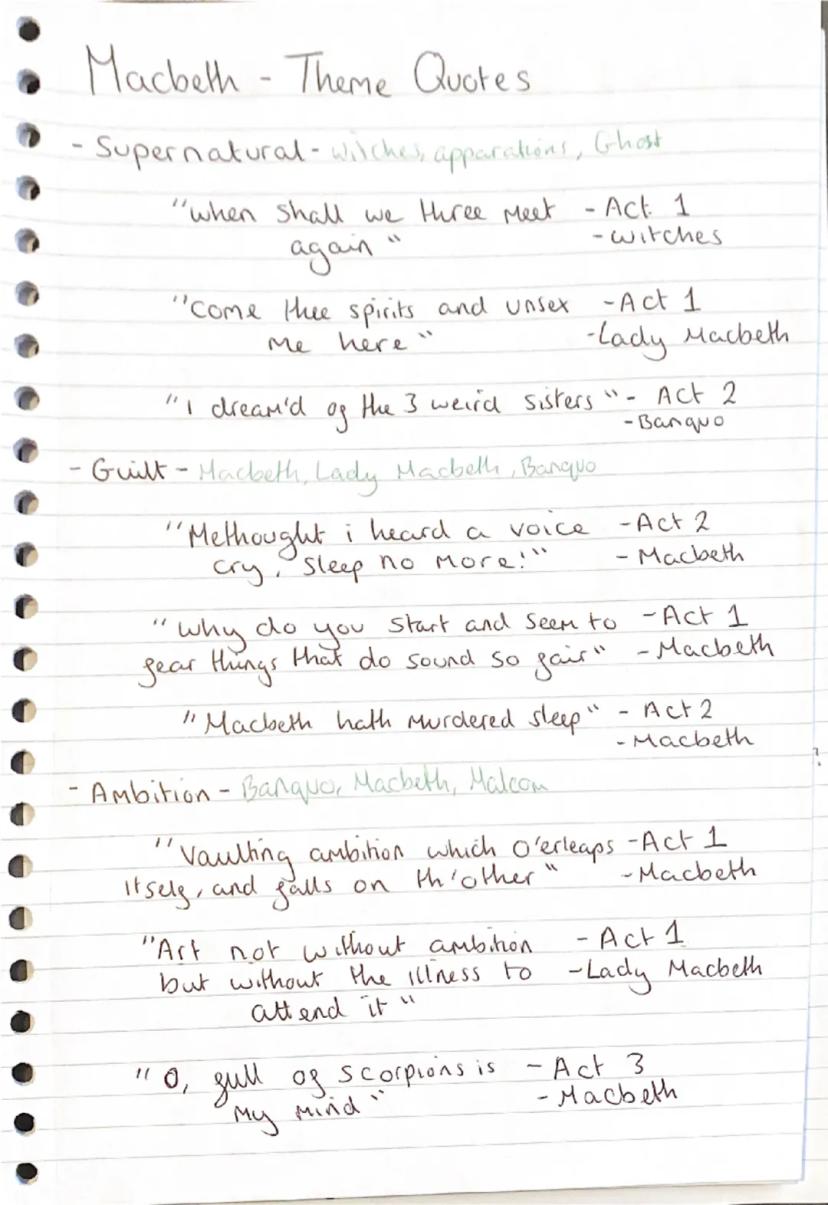 Macbeth - Theme Quotes
- Supernatural - witches, apparations, Ghost
"when shall we three meet - Act 1
again" - witches
"Come thee spirits and unsex - Act 1
me here" - Lady Macbeth
"I dream'd of the 3 weird sisters" - Act 2
- Banquo
- Guilt - Macbeth, Lady Macbeth, Banquo
"Methought i heard a voice - Act 2
cry, 'sleep no more!'" - Macbeth
"why do you start and seem to - Act 1
fear things that do sound so fair" - Macbeth
"Macbeth hath murdered sleep" - Act 2
- Macbeth
- Ambition - Banquo, Macbeth, Malcom
"Vaulting ambition which o'erleaps - Act 1
itself, and falls on th'other" - Macbeth
"Art not without ambition - Act 1
but without the illness to - Lady Macbeth
attend it"
"O, full of scorpions is - Act 3
my mind" - Macbeth